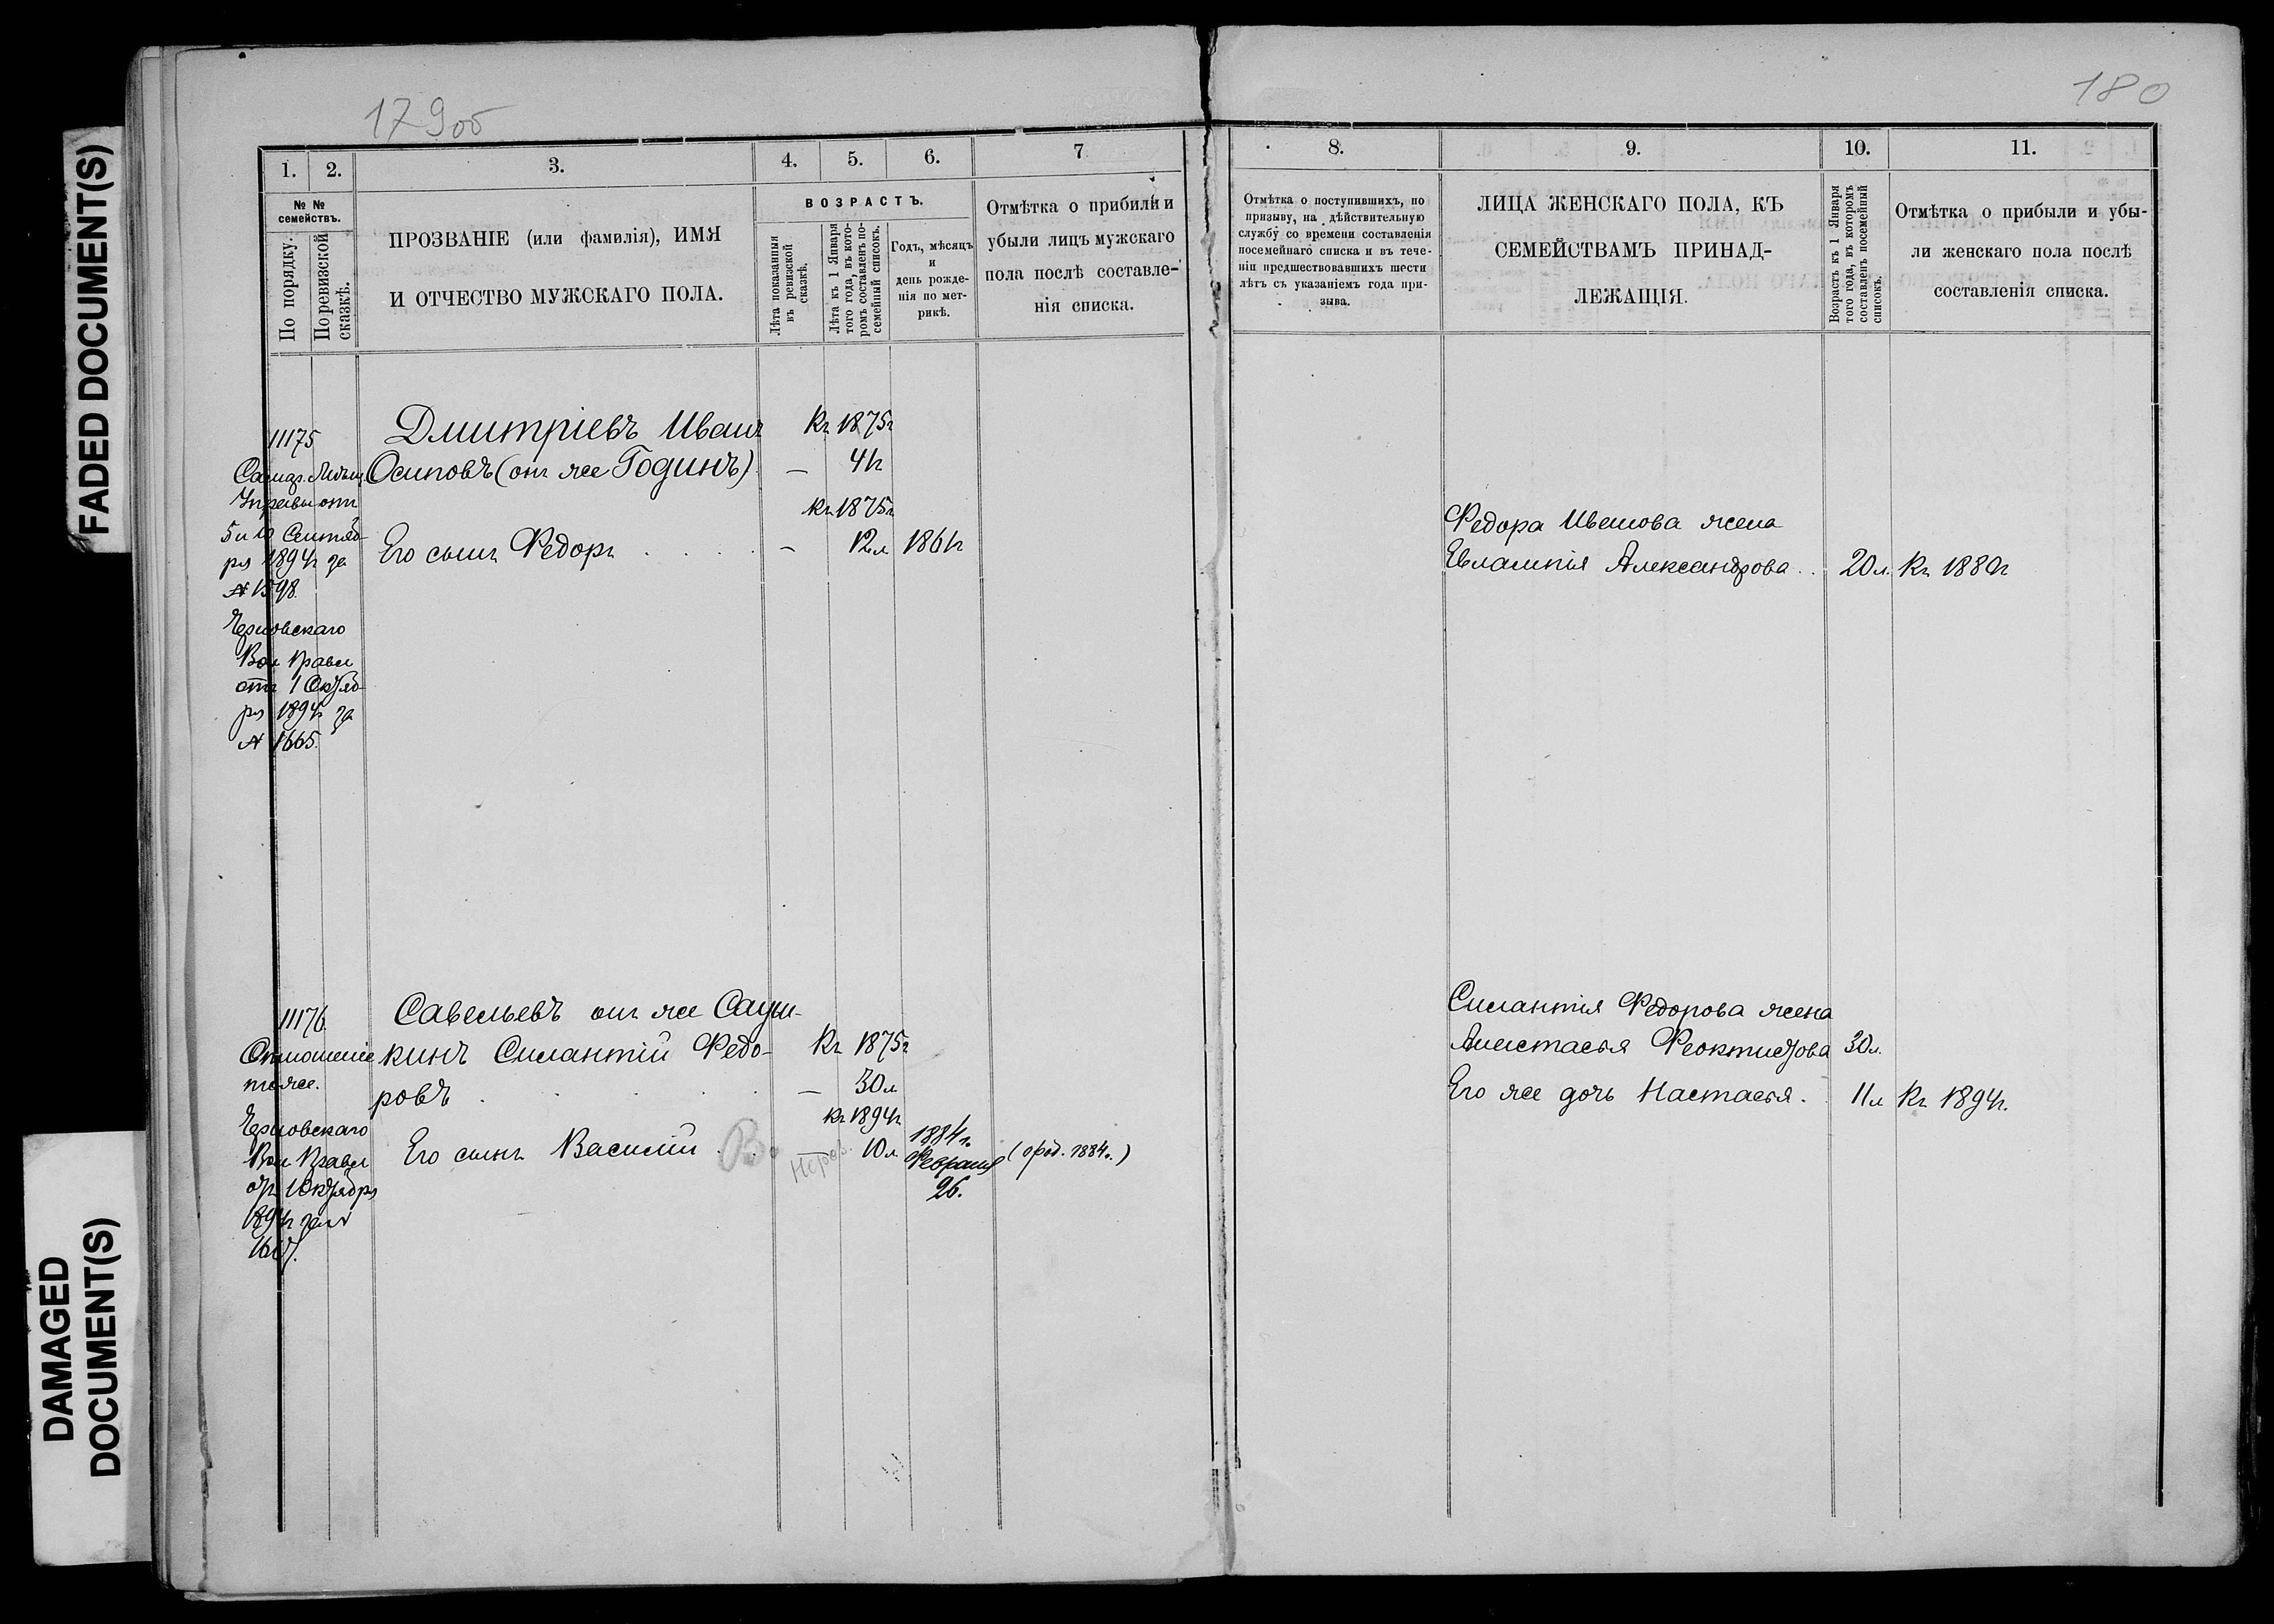 FADED DOCUMENT(S)
DAMAGED
DOCUMENT(S)
179об
1.
2.
3.
4.
5.
6.
7
№ №
семействъ.
По порядку.
По ревизской
сказкѣ.
ПРОЗВАНІЕ (или фамилія), ИМЯ
И ОТЧЕСТВО МУЖСКАГО ПОЛА.
ВОЗРАСТЪ.
Лѣта показанныя
въ ревизской
сказкѣ.
Лѣта къ 1 Января
того года, въ кото-
ромъ составленъ по-
семейный списокъ.
Годъ, мѣсяцъ
и
день рожде-
нія по мет-
рикѣ.
Отмѣтка о прибыли и
убыли лицъ мужскаго
пола послѣ составле-
нія списка.
11175
Управы отъ
5 и 10 Сентяб-
ря 1894г за
№ 1598.
Черновскаго
Вол Правл
отъ 1 Октяб-
ря 1894г за
№ 1665.
Дмитріевъ Иванъ
Осиповъ (онъ же Годинъ)
Къ 1875г
— 41г
Его сынъ Федоръ . . . .
къ 1875г
— 12л 1861г
11176
Отношеніе
тоже.
Черновскаго
Вол Правл
отъ 1 Октября
1894г за №
Савельевъ онъ же Сауш-
кинъ Силантій Федо-
ровъ . . . .
Къ 1875г
— 30л
Его сынъ Василій . .
къ 1894г
— 10л
1884г.
Февраля
26.
(о род. 1884г.)
180
8.
9.
10.
11.
Отмѣтка о поступившихъ, по
призыву, на дѣйствительную
службу со времени составленія
посемейнаго списка и въ тече-
ніи предшествовавшихъ шести
лѣтъ съ указаніемъ года при-
зыва.
ЛИЦА ЖЕНСКАГО ПОЛА, КЪ
СЕМЕЙСТВАМЪ ПРИНАД-
ЛЕЖАЩІЯ.
Возрастъ къ 1 Января
того года, въ которомъ
составленъ посемейный
списокъ.
Отмѣтка о прибыли и убы-
ли женскаго пола послѣ
составленія списка.
Федора Иванова жена
Евлампія Александрова . . 20л. Къ 1880г
Силантія Федорова жена
Анастасья Феоктистова 30л.
Его же дочь Настасья . 11л Къ 1894г.